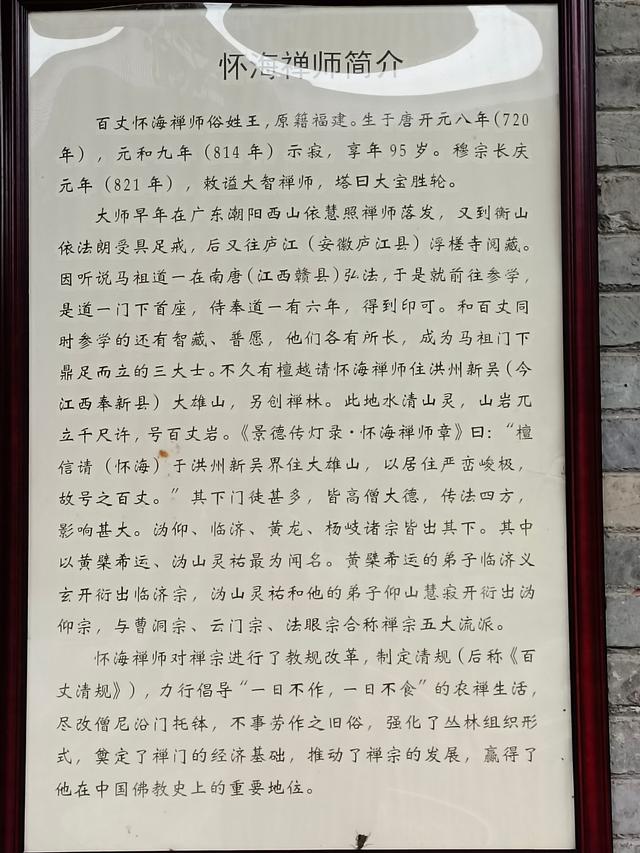 怀海禅师简介
百丈怀海禅师俗姓王，原籍福建。生于唐开元八年（720
年），元和九年（814 年）示寂，享年 95 岁。穆宗长庆
元年（821 年），敕谥大智禅师，塔曰大宝胜轮。
大师早年在广东潮阳西山依慧照禅师落发，又到衡山
依法朗受具足戒，后又往庐江（安徽庐江县）浮槎寺阅藏。
因听说马祖道一在南唐（江西赣县）弘法，于是就前往参学，
是道一门下首座，侍奉道一有六年，得到印可。和百丈同
时参学的还有智藏、普愿，他们各有所长，成为马祖门下
鼎足而立的三大士。不久有檀越请怀海禅师住洪州新吴（今
江西奉新县）大雄山，另创禅林。此地水清山灵，山岩兀
立千尺许，号百丈岩。《景德传灯录·怀海禅师章》曰：“檀
信请（怀海）于洪州新吴界住大雄山，以居住严峦峻极，
故号之百丈。”其下门徒甚多，皆高僧大德，传法四方，
影响甚大。沩仰、临济、黄龙、杨岐诸宗皆出其下。其中
以黄檗希运、沩山灵祐最为闻名。黄檗希运的弟子临济义
玄开衍出临济宗，沩山灵祐和他的弟子仰山慧寂开衍出沩
仰宗，与曹洞宗、云门宗、法眼宗合称禅宗五大流派。
怀海禅师对禅宗进行了教规改革，制定清规（后称《百
丈清规》），力行倡导“一日不作，一日不食”的农禅生活，
尽改僧尼沿门托钵，不事劳作之旧俗，强化了丛林组织形
式，奠定了禅门的经济基础，推动了禅宗的发展，赢得了
他在中国佛教史上的重要地位。